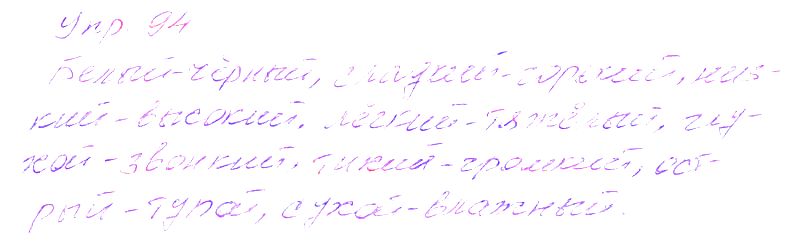 Упр. 94
Белый-чёрный, сладкий-горький, низ-
кий-высокий, лёгкий-тяжёлый, глу-
хой-звонкий, тихий-громкий, ост-
рый-тупой, сухой-влажный.